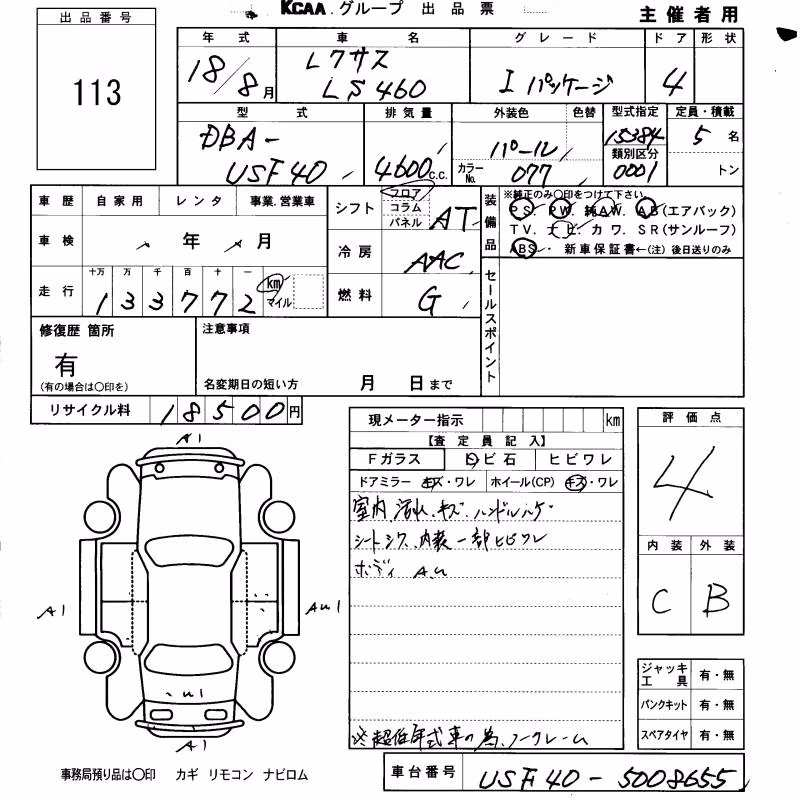 KCAA.グループ 出品票
主催者用
出品番号
113
年式 車名 グレード ドア 形状
18/8月 レクサス LS460 Iパッケージ 4
型式 排気量 外装色 色替 型式指定 定員・積載
DBA-USF40 4600c.c. パール カラーNo. 077 15384 5名
類別区分
0001 トン
車歴 自家用 レンタ 事業.営業車
車検 年 月
走行 十万 万 千 百 十 一
133772 km マイル
シフト フロア コラム パネル AT
冷房 AAC
燃料 G
装備品 ※純正のみ○印をつけて下さい
PS. PW. 純AW. AB(エアバック)
TV. ナビ カワ. SR(サンルーフ)
ABS・ 新車保証書←(注) 後日送りのみ
セールスポイント
修復歴 箇所
有
(有の場合は○印を)
注意事項
名変期日の短い方 月 日まで
リサイクル料 18500円
現メーター指示 km
【査定員記入】
Fガラス トビ石 ヒビワレ
ドアミラー キズ・ワレ ホイール(CP) キズ・ワレ
室内 汚れ、キズ ハンドルハゲ
シートシワ 内装一部ヒビワレ
ボディ A.U
※超低年式車の為、ノークレーム
評価点
4
内装 外装
C B
ジャッキ工具 有・無
パンクキット 有・無
スペアタイヤ 有・無
A1
A1
AU1
U1
A1
事務局預り品は○印 カギ リモコン ナビロム
車台番号 USF40-5008655